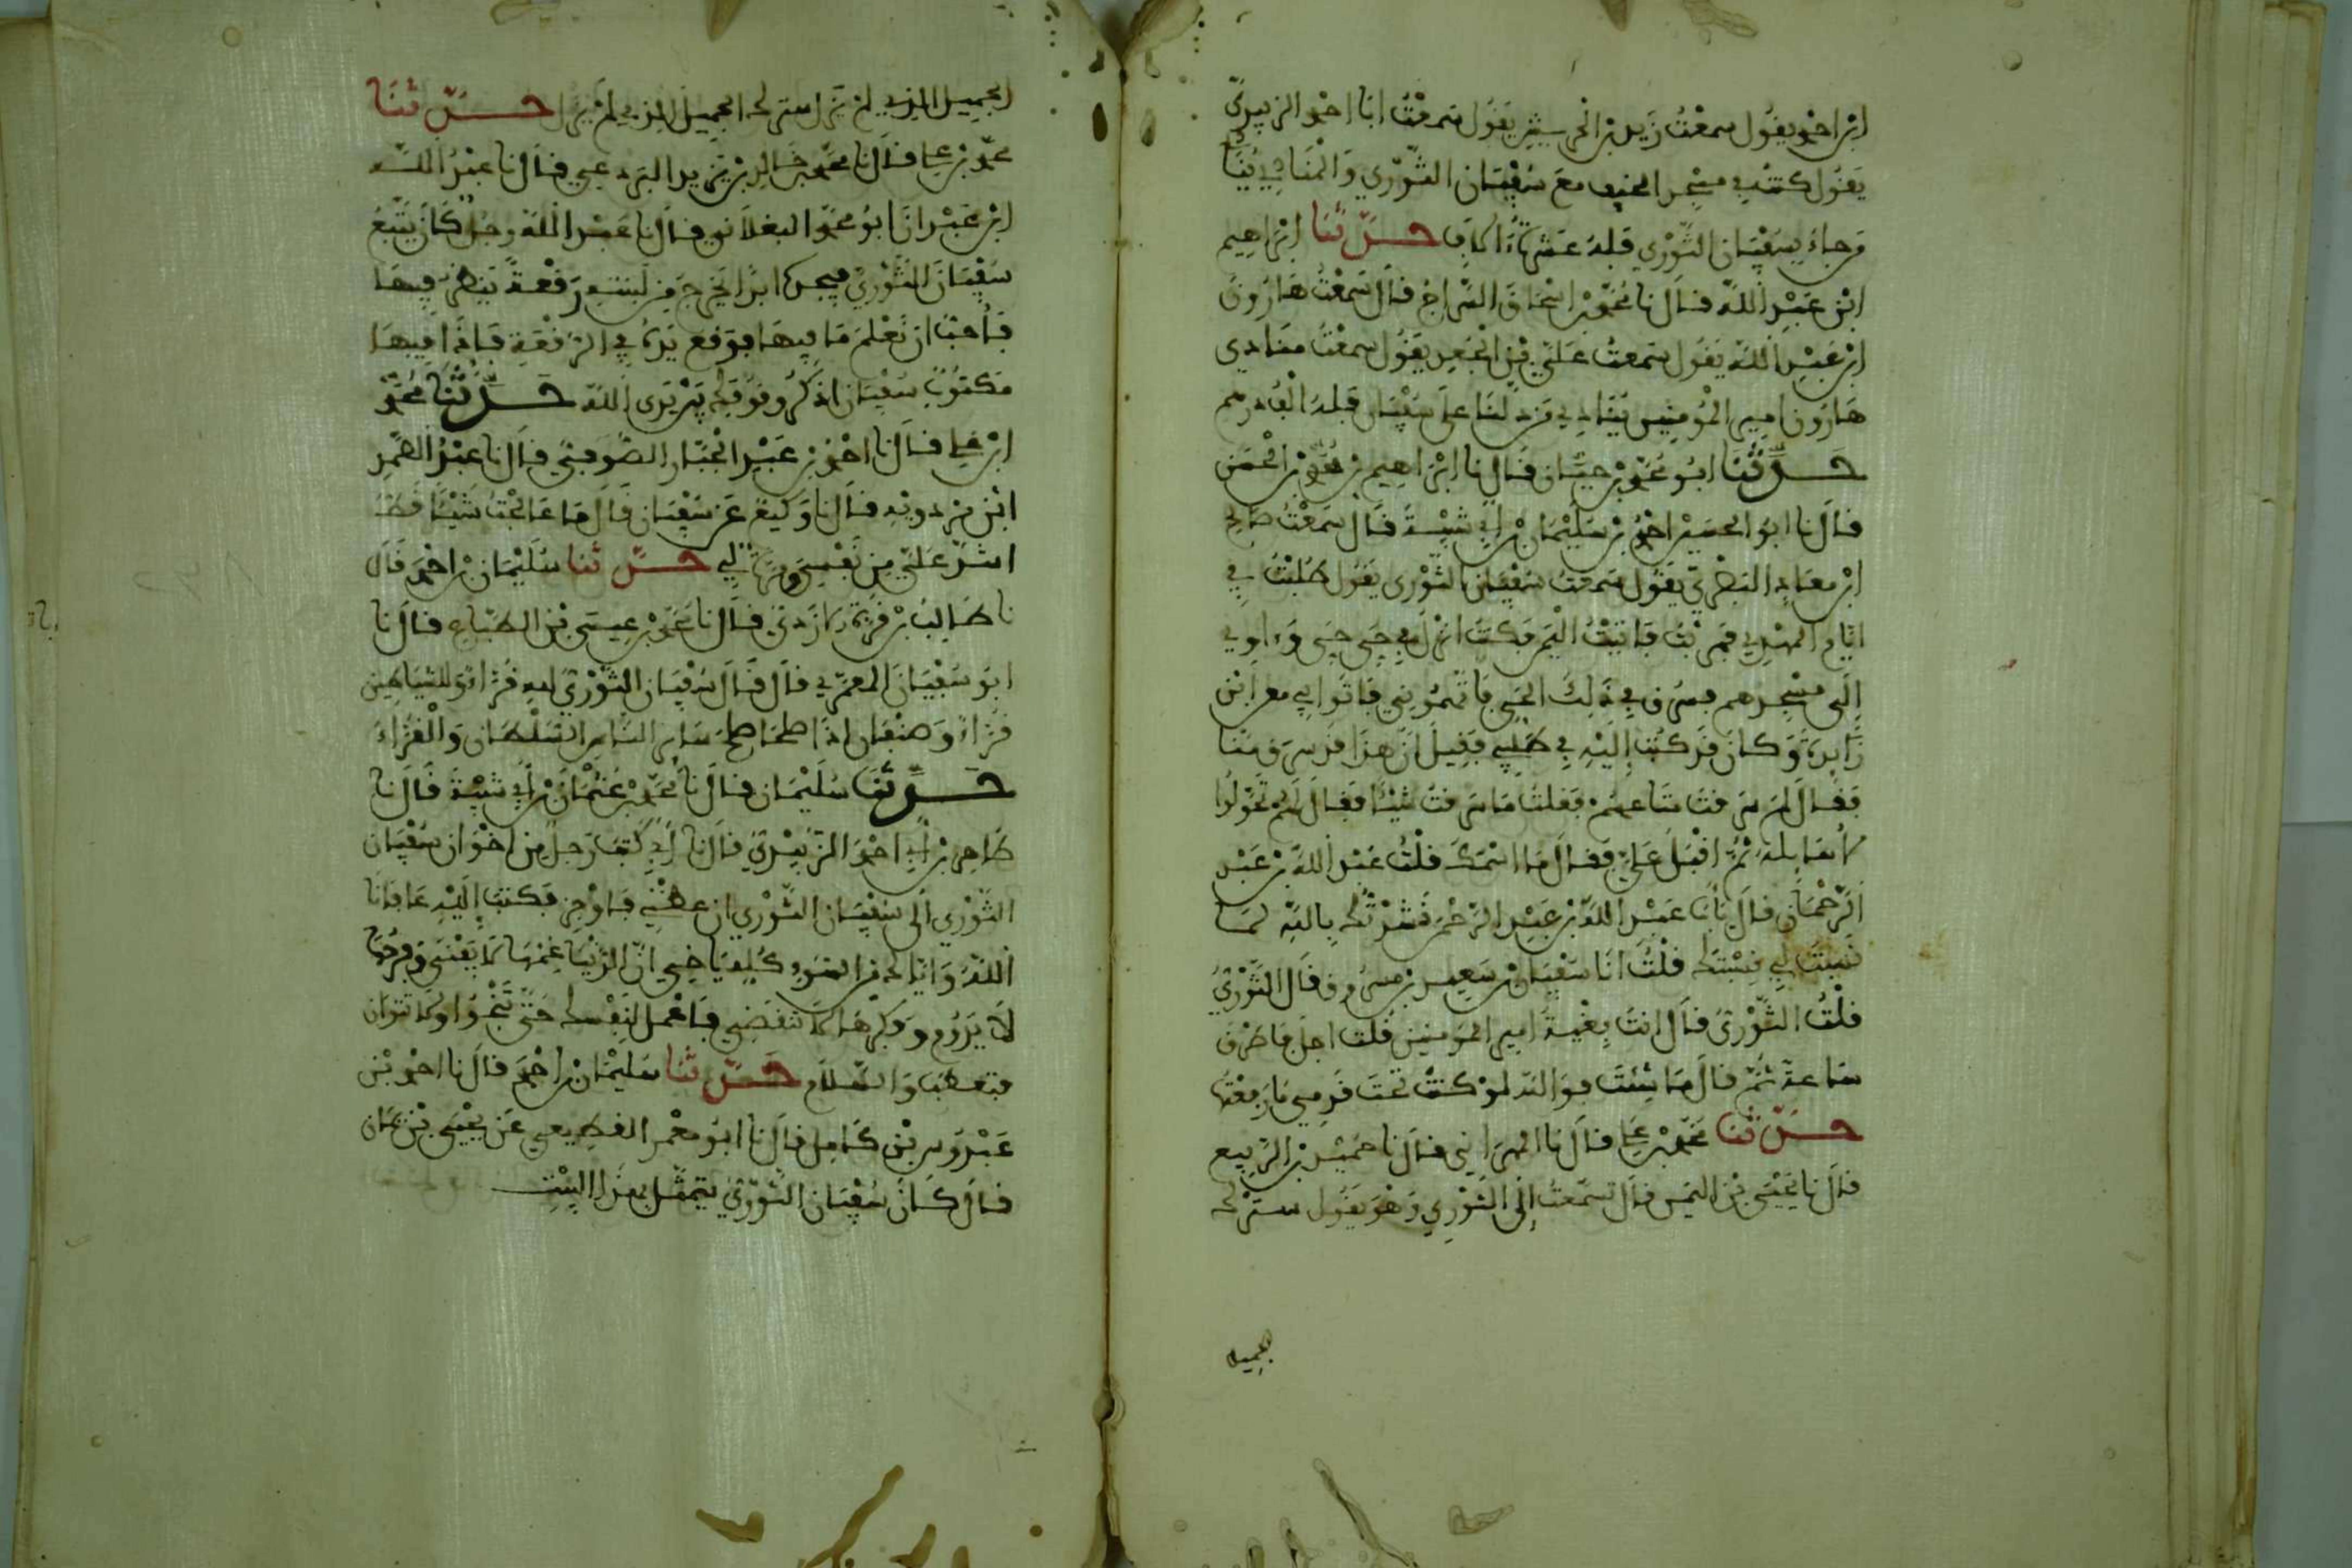 ابن احمد يقول سمعت زيد بن الحريش يقول سمعت ابا احمد الزبيري
يقول كنت في مسجد الخيف مع سفيان الثوري والمنادي ينادي
من جاء بسفيان الثوري فله عشرة ءالاف حدثنا ابراهيم
ابن عبد الله قال نا محمد بن اسحاق السراج قال سمعت هارون
ابن عبد الله يقول سمعت علي بن الجعد يقول سمعت منادي
هارون امير المومنين ينادي من دلنا على سفيان فله الف درهم
حدثنا ابو محمد بن حيان قال نا ابراهيم بن محمد بن الحسن
قال نا ابو الحسين احمد بن سليمان بن ابي شيبة قال سمعت صالح
ابن معاذ البصري يقول سمعت سفيان الثوري يقول طلبت في
ايام المهدي فهربت فاتيت اليمن فكنت انزل في حي حي وءاوي
الى مسجدهم فسرق في ذلك الحي فاتهموني فاتوا بي معن ابن
زايدة وكان قد كتب اليه في طلبي فقيل ان هذا قد سرق منا
فقال لم سرقت متاعهم فقلت ما سرقت شيئا فقال لهم تحولوا
لاسايله ثم اقبل علي فقال ما اسمك قلت عبد الله بن عبد
الرحمان قال يا عبد الله بن عبد الرحمن نشدتك بالله لما
نسبت لي نسبتك قلت انا سفيان بن سعيد بن مسروق قال الثوري
قلت الثوري قال انت بغية امير المومنين قلت اجل فاطرق
ساعة ثم قال ما شئت فوالله لو كنت تحت قدمي ما رفعتها
حدثنا محمد بن علي قال نا المهراني قال نا حميد بن الربيع
قال نا يحيى بن اليمن قال سمعت الى الثوري وهو يقول سترك
الجميل
الجميل الذي لم يزل سترك الجميل الذي لم يزل حدثنا
محمد بن علي قال نا محمد بن خالد بن يزيد البردعي قال نا عبد الله
ابن عبد انا ابو محمد البغلاني قال نا عبد الله رجل كان يتبع
سفيان الثوري فيجده ابدا يخرج من لبنته رقعة ينظر فيها
فاحب ان يعلم ما فيها فوقع يده في الرقعة فاذا فيها
مكتوب سفيان اذكر وقوفك بين يدي الله حدثنا محمد
ابن علي قال نا احمد بن عبد الجبار الصوفي قال نا عبد الصمد
ابن مردويه قال نا وكيع عن سفيان قال ما عالجت شيئا قط
اشد علي من نفسي ومرة لي حدثنا سليمان بن احمد قال
نا طالب بن قرة الاذني قال نا محمد بن عيسى بن الطباع قال نا
ابو سفيان المعمري قال قال سفيان الثوري لله قراء وللشياطين
قراء وصنفان اذا صلحا صلح ساير الناس السلطان والقراء
حدثنا سليمان قال نا محمد بن عثمان بن ابي شيبة قال نا
طاهر بن ابي احمد الزبيري قال نا ابي كتب رجل من اخوان سفيان
الثوري الى سفيان الثوري ان عظني فاوجز فكتب اليه عافانا
الله واياك من السوء كله يا اخي ان الدنيا غمها لا يفنى وفرحها
لا يدوم وفكرها لا تنقضي فاعمل لنفسك حتى تنجوا ولا تتوان
فتعطب والسلام حدثنا سليمان بن احمد قال نا احمد بن
عبدوس بن كامل قال نا ابو معمر القطيعي عن يحيى بن يمان
قال كان سفيان الثوري يتمثل بهذا البيت